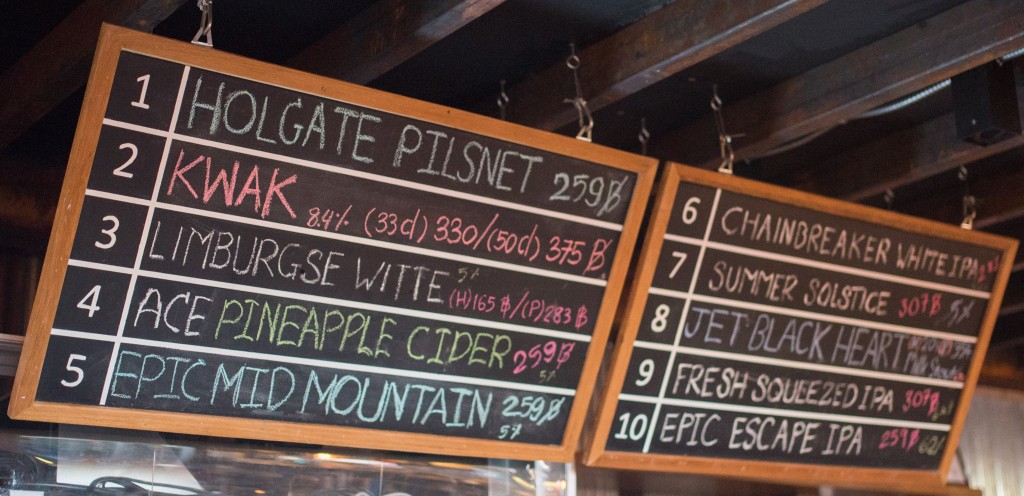 1 HOLGATE PILSNET 259฿
2 KWAK 8.4% (33cl) 330/(50cl) 375 ฿
3 LIMBURGSE WITTE 5% (H)165 ฿/(P)283 ฿
4 ACE PINEAPPLE CIDER 259฿ 5%
5 EPIC MID MOUNTAIN 259฿ 5%
6 CHAINBREAKER WHITE IPA
7 SUMMER SOLSTICE 307฿ 5%
8 JET BLACK HEART
9 FRESH SQUEEZED IPA 307฿
10 EPIC ESCAPE IPA 259฿